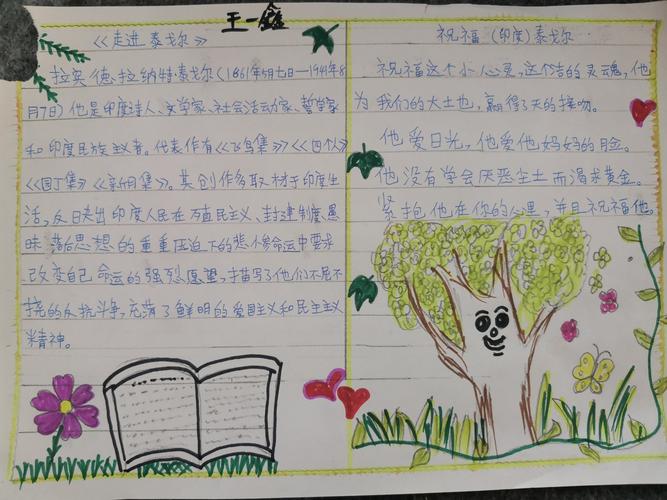 王一鑫
《走进泰戈尔》
拉宾德拉纳特·泰戈尔（1861年5月七日—1941年8
月7日）他是印度诗人、文学家、社会活动家、哲学家
和印度民族主义者。代表作有《飞鸟集》《四个人》
《园丁集》《新月集》。其创作多取材于印度生
活，反日夫出印度人民在殖民主义、封建制度愚
昧落后思想的重重压迫下的悲惨命运中要求
改变自己命运的强烈愿望，描写了他们不屈不
挠的反抗斗争，充满了鲜明的爱国主义和民主主义
精神。
祝福（印度）泰戈尔
祝福这个小心灵，这个洁的灵魂，他
为我们的大土也，赢得了天的接吻。
他爱日光，他爱他妈妈的脸。
他没有学会厌恶尘土而渴求黄金。
紧抱他在你的心里，并且祝福他。